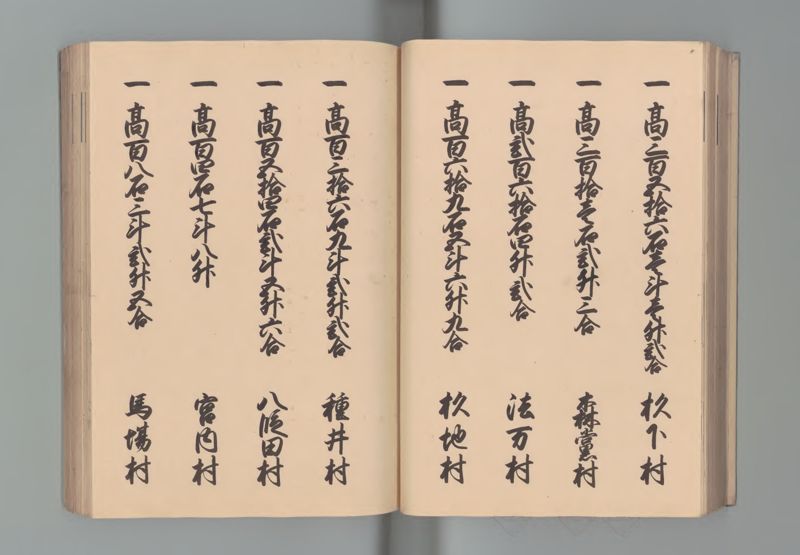 一 高三百五拾六石壱斗壱升弐合 杦下村
一 高三百拾壱石弐升三合 森黨村
一 高弐百六拾石四升弐合 法万村
一 高百六拾九石五斗六升九合 杦地村
一 高百三拾六石九斗弐升弐合 種井村
一 高百五拾四石弐斗五升六合 八反田村
一 高百四石七斗八升 宮内村
一 高百八石三斗弐升五合 馬場村